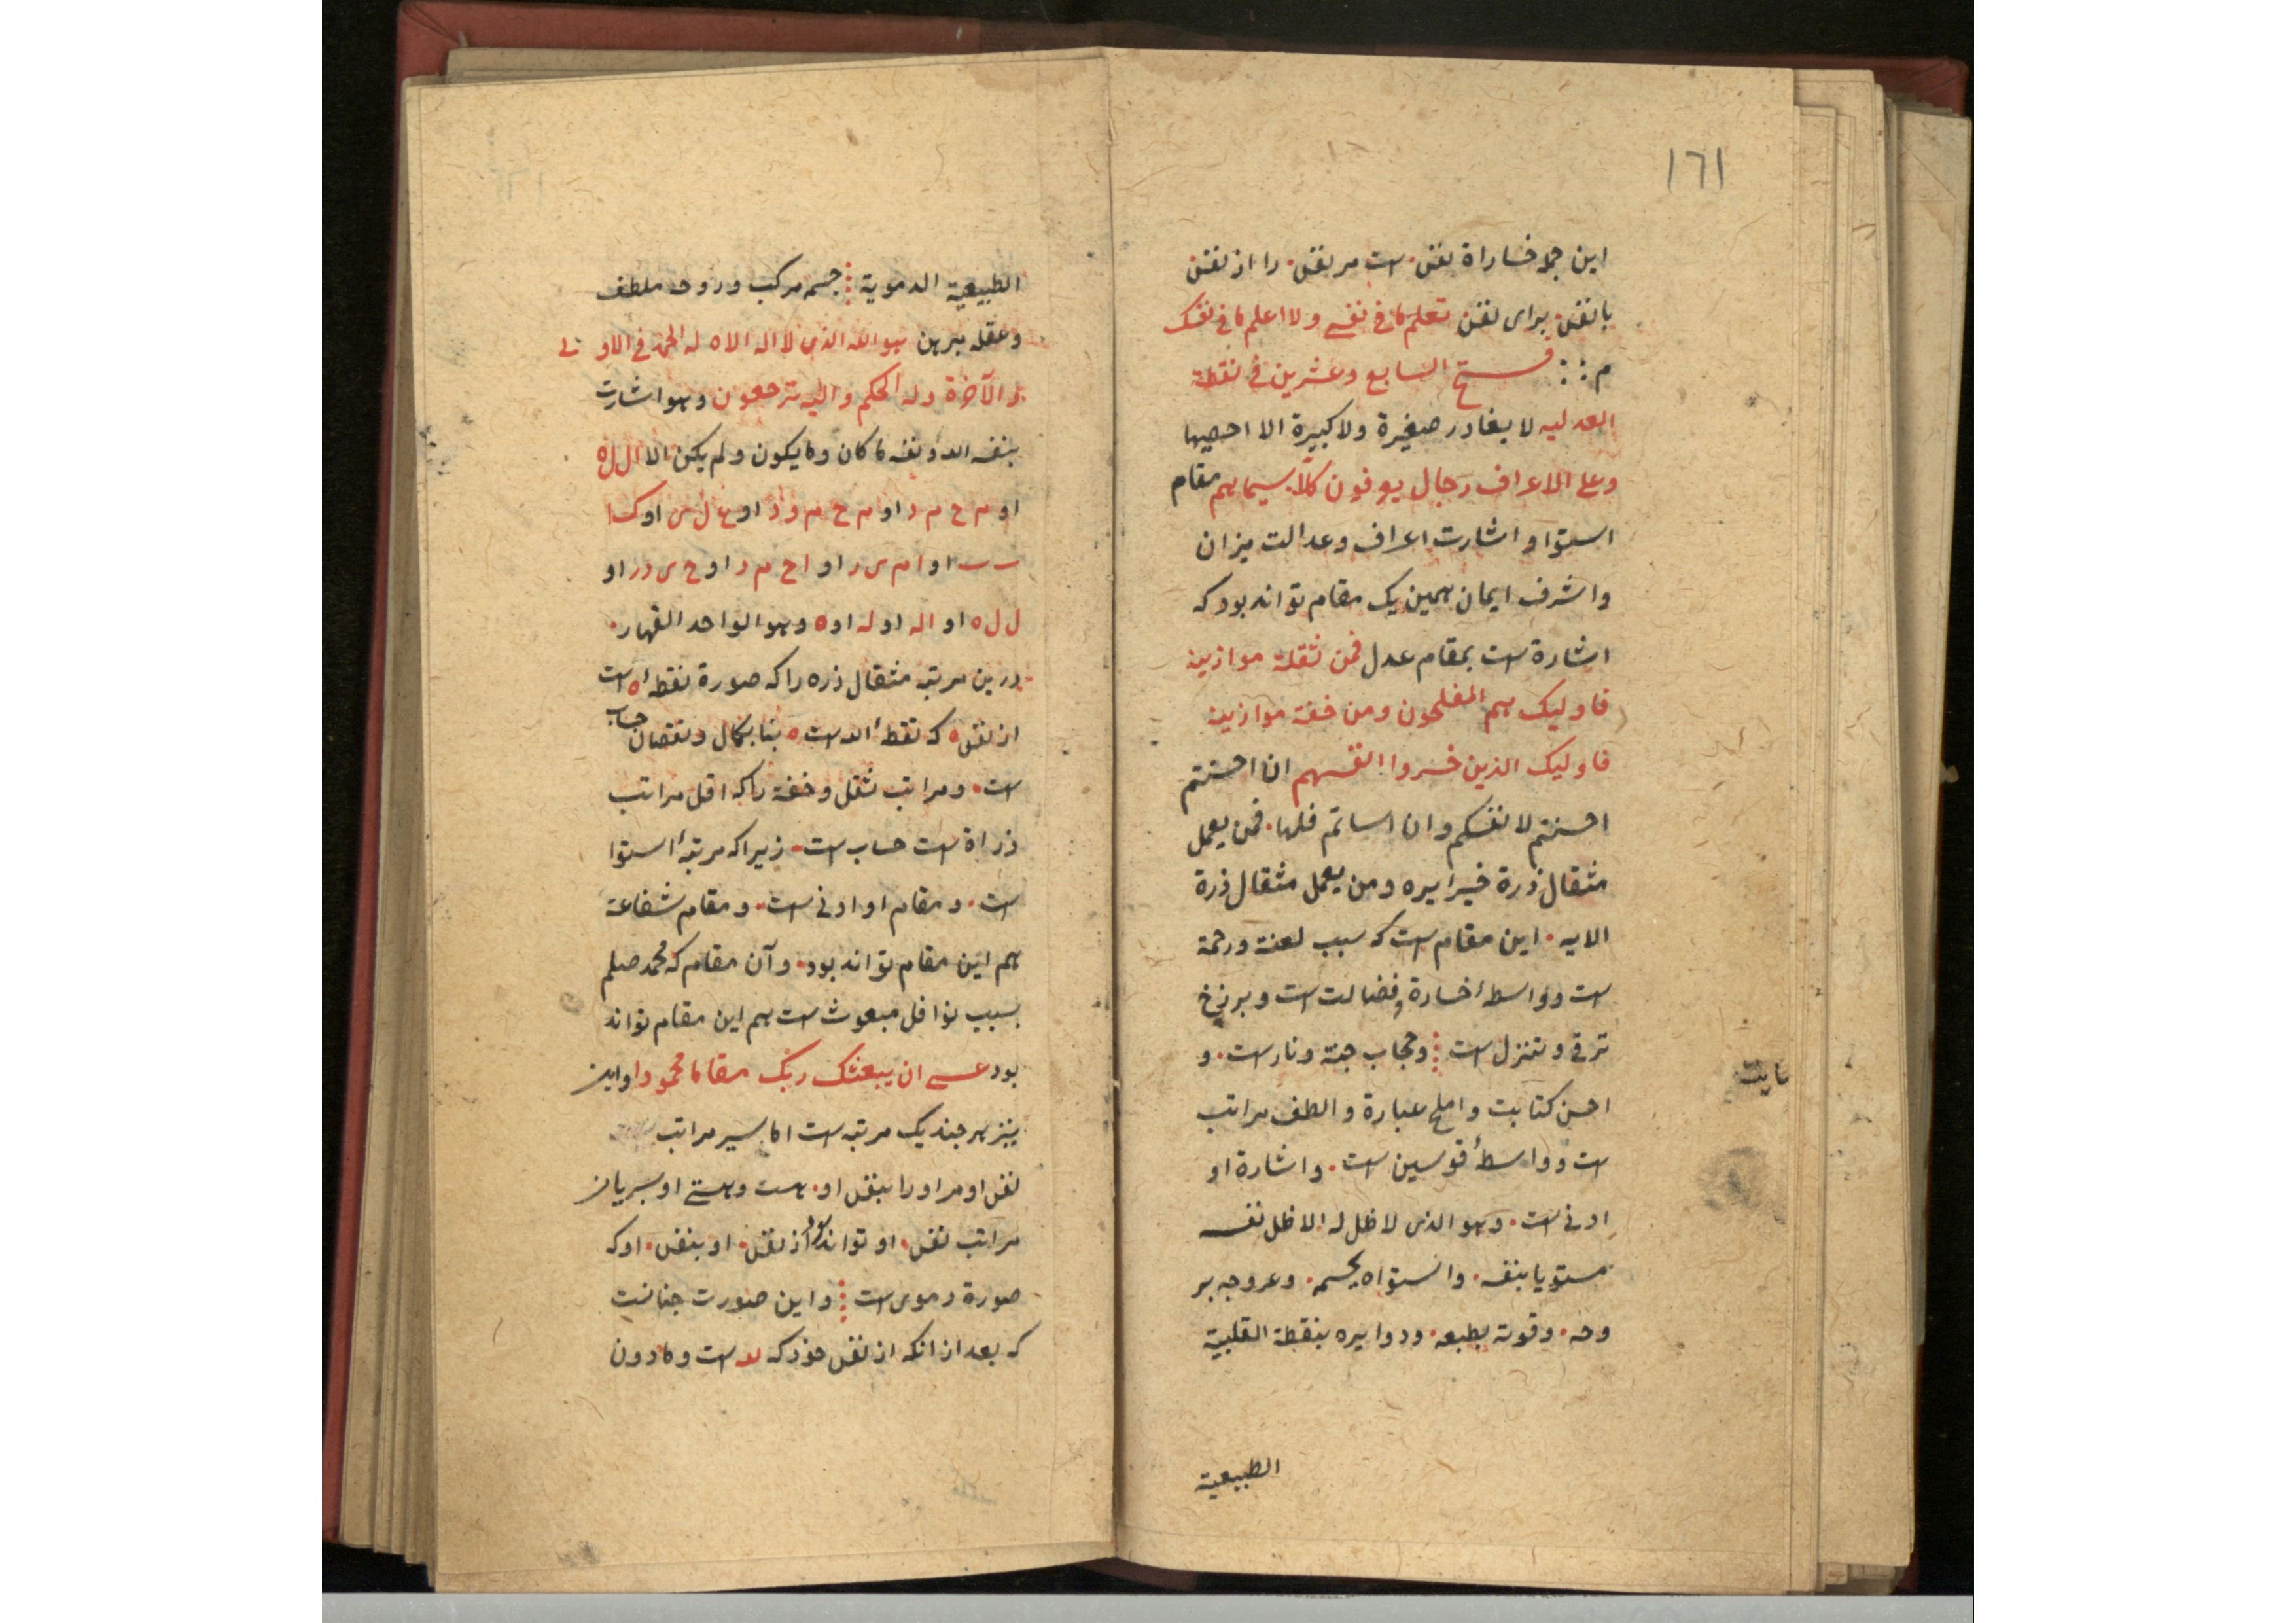 ١٦١
این جملا خساراة نقس ست مر نقس را از نقس
با نقس برای نقس تعلم ما فی نفسی ولا اعلم ما فی نفسک
م فتح السابع وعشرین فی نقطة
العدلیه لا یغادر صغیرة ولا کبیرة الا احصیها
وعلی الاعراف رجال یعرفون کلا بسیماهم مقام
استوا و اشارت اعراف وعدالت میزان
واشرف ایمان همین یک مقام تواند بود که
اشارة ست بمقام عدل فمن ثقلة موازینه
فاولیک هم المفلحون ومن خفة موازینه
فاولیک الذین خسروا انفسهم ان احسنتم
احسنتم لانفسکم وان اساتم فلها فمن یعمل
مثقال ذرة خیرا یره ومن یعمل مثقال ذرة
الایه این مقام ست که سبب لعنت ورحمة
ست وواسطهٔ خسارة وفضالت ست وبرزخ
ترقی وتنزل ست وحجاب جنة ونار ست و
احسن کتابت واملح عبارة والطف مراتب
ست وواسطهٔ قوسین ست واشارة او
ادنی ست وهو الذی لا ظل له الا ظل نفسه
مستویا بنفسه واستواه بجسمه وعروجه بر
وحه وقوته بطبعه ودوایره بنقطة القلبیة
الطبیعیة
الطبیعیة الدمویة جسم مرکب وروحه ملطف
وعقله مبرهن هو الله الذی لا اله الا ه له الحمد فی الاولی
والآخرة وله الحکم والیه ترجعون وهو اشارت
بنفسه الله ونفسه ما کان وما یکون ولم یکن الا ال ل ه
او م ح م د او م ح م و د او ع ل ی او ک ا
او ا م ی ر او ا ح م د او ح ی در او
ل ل ه او اله او له او ه وهو الواحد القهار
درین مرتبه مثقال ذره را که صورة نقطهٔ ه ست
از نقس ه که نقطهٔ الله ست ه بنا بکمال ونقصان حساب
ست ومراتب ثقل وخفة را که اقل مراتب
ذراة ست حساب ست زیرا که مرتبهٔ استوا
ست ومقام او ادنی ست ومقام شفاعة
هم این مقام تواند بود وآن مقام که محمد صلم
بسبب نوافل مبعوث ست هم این مقام تواند
بود عسی ان یبعثک ربک مقاما محمودا واین
نیز هر چند یک مرتبه ست اما بسیر مراتب
نقس او مر او را بنقس او هست وهستی او بسریان
مراتب نقس او تواند بود از نقس او بنقس او که
صورة دموی ست واین صورت چنانست
که بعد از انکه از نقس خود که ست ومادون